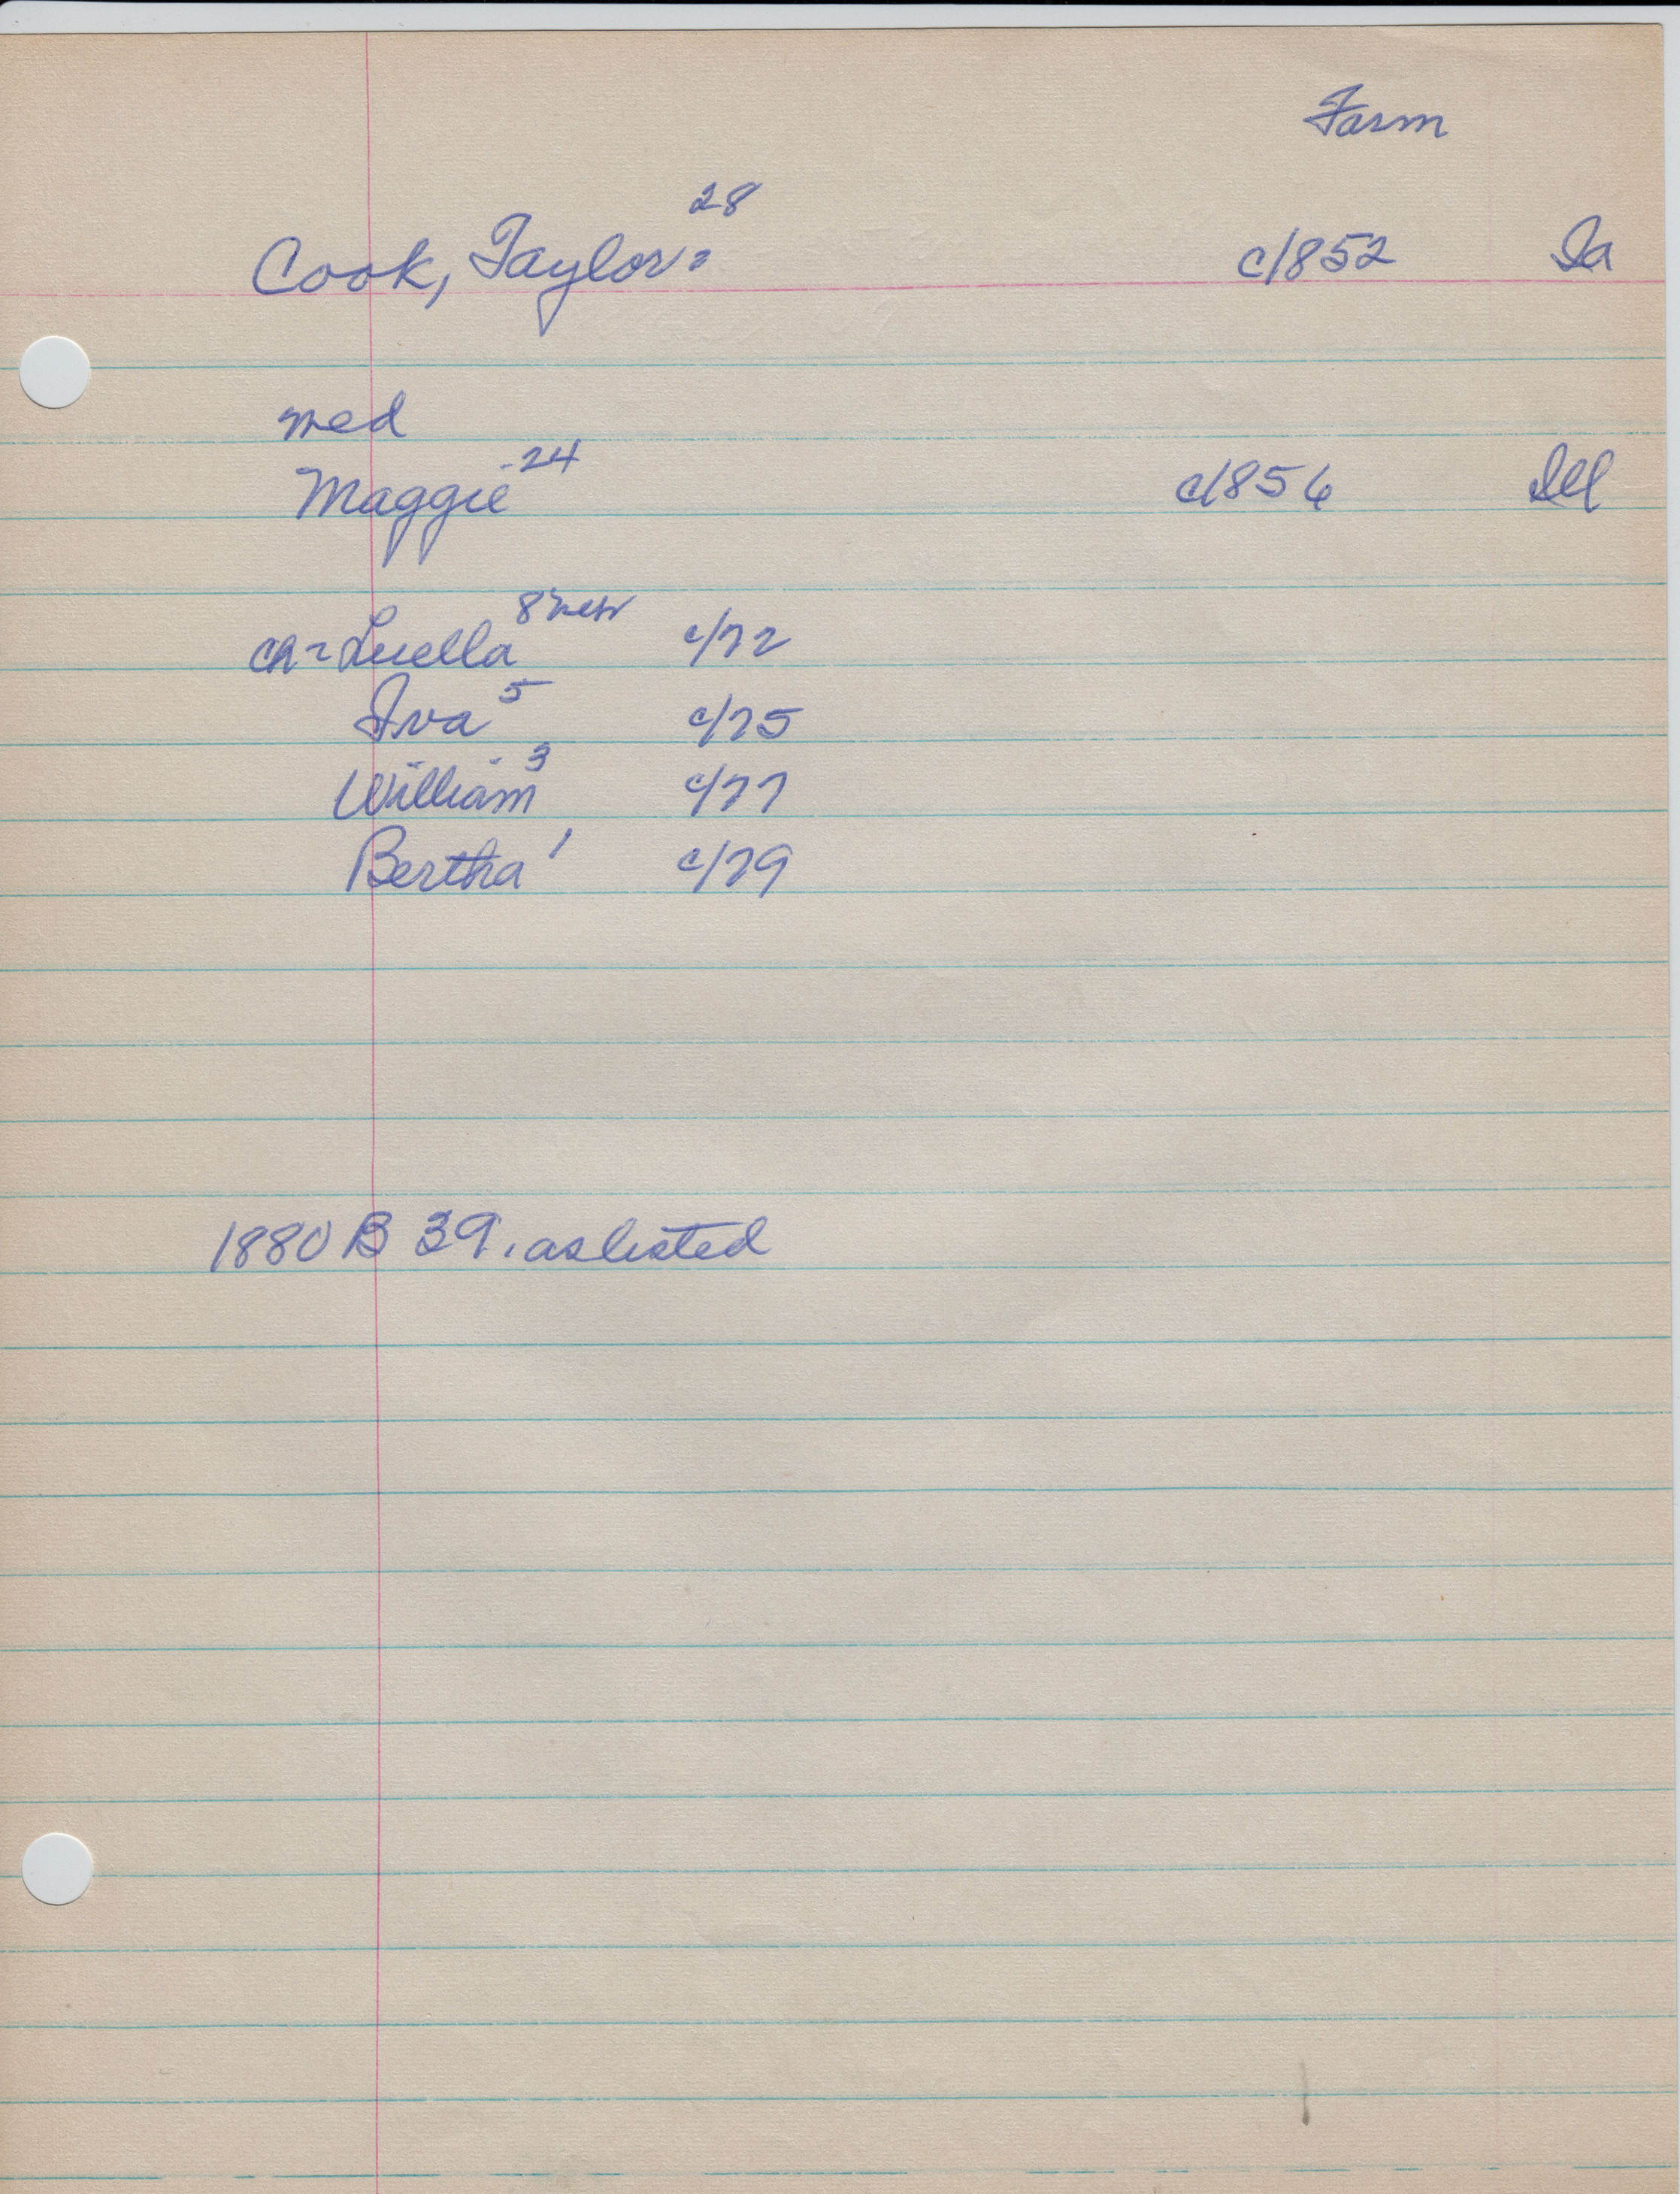 Farm
Cook, Taylor= 28 c/1852 Ia
med
Maggie 24 c/1856 Ill
ch= Luella 8 c/72
Iva 5 c/75
William 3 c/77
Bertha 1 c/79
1880 B 39. as listed